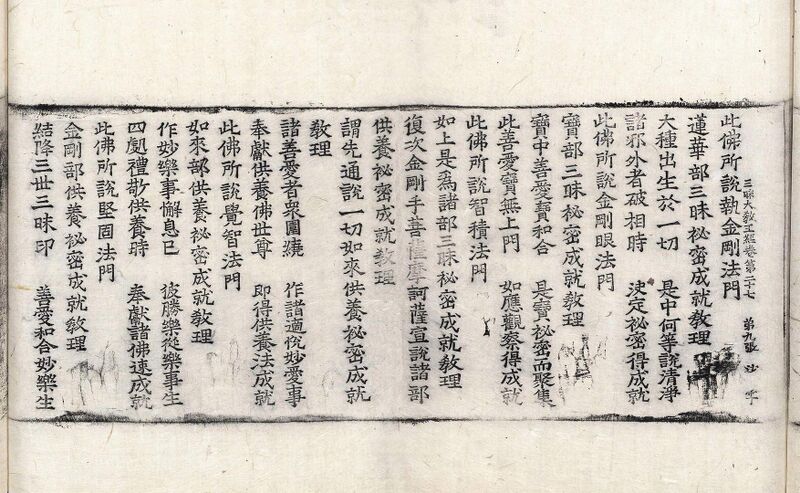 此佛所說執金剛法門
三昧大教王經卷第二十七　第九張　竗字
蓮華部三昧祕密成就教理
大種出生於一切　是中何等說清淨
諸邪外者破相時　決定祕密得成就
此佛所說金剛眼法門
寶部三昧祕密成就教理
寶中善愛寶和合　是寶祕密而聚集
此善愛寶無上門　如應觀察得成就
此佛所說智積法門
如上是為諸部三昧祕密成就教理
復次金剛手菩薩摩訶薩宣說諸部
供養祕密成就教理
謂先通說一切如來供養祕密成就
教理
諸善愛者衆圍繞　作諸適恱妙愛事
奉獻供養佛世尊　即得供養法成就
此佛所說覺智法門
如來部供養祕密成就教理
作妙樂事懈息已　彼勝樂從樂事生
四剋禮敬供養時　奉獻諸佛速成就
此佛所說堅固法門
金剛部供養祕密成就教理
結降三世三昧印　善愛和合妙樂生